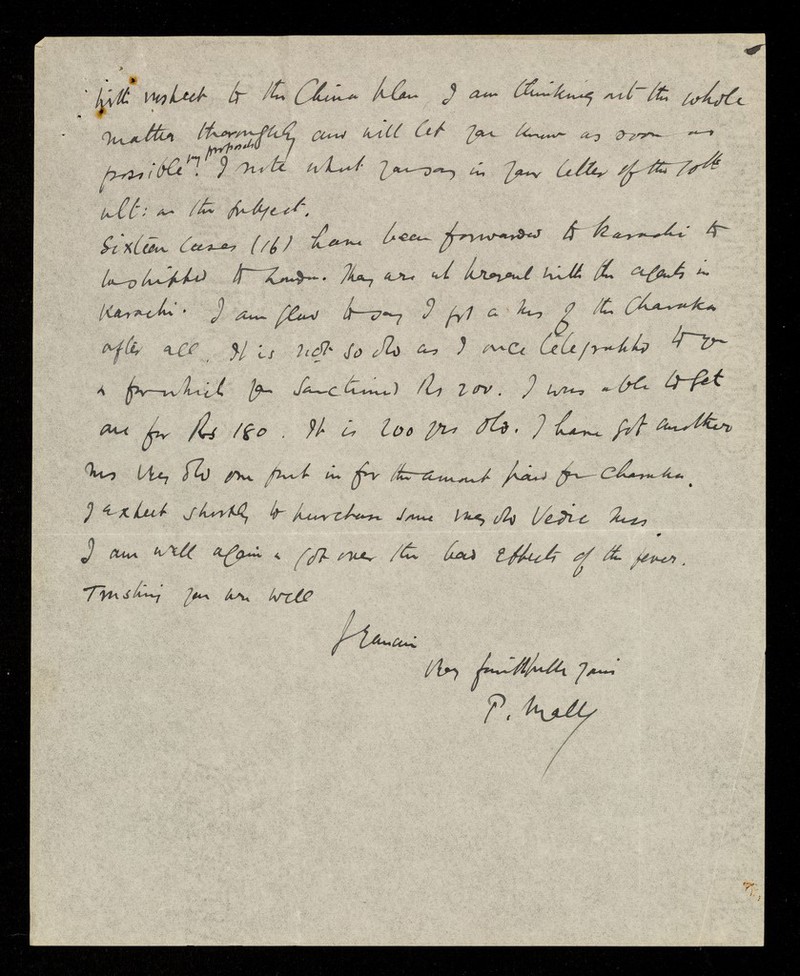 With respect to the China plan, I am thinking out the whole
matter thoroughly and will let you know as soon as
my proposals
possible. I note what you say in your letter of the 10th
ult: on the subject.
Sixteen cases (16) have been forwarded to Karachi to
be shipped to London. They are at present with the agents in
Karachi. I am glad to say I got a ms of the Charaka
after all. It is not so old as I once telegraphed to you
& for which you sanctioned Rs 200. I was able to get
one for Rs 180. It is 200 yrs old. I have got another
ms very old one put in for the amount paid for Charaka.
I expect shortly to purchase some very old Vedic mss.
I am well again & got over the bad effects of the fever.
Trusting you are well
I remain
Very faithfully yours
P. Mall